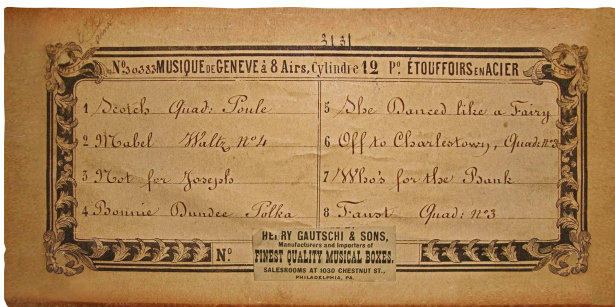 3131
Nº30383 MUSIQUE DE GENEVE à 8 Airs, Cylindre 12 Pº. ÉTOUFFOIRS EN ACIER
1 Scotch Quad: Poule
2 Mabel Waltz, nº 4
3 Not for Joseph
4 Bonnie Dundee Polka
5 She Danced like a Fairy
6 Off to Charlestown, Quad: nº3
7 Who's for the Bank
8 Faust Quad: nº3
Nº
HENRY GAUTSCHI & SONS,
Manufacturers and Importers of
FINEST QUALITY MUSICAL BOXES.
SALESROOMS AT 1030 CHESTNUT ST.,
PHILADELPHIA, PA.